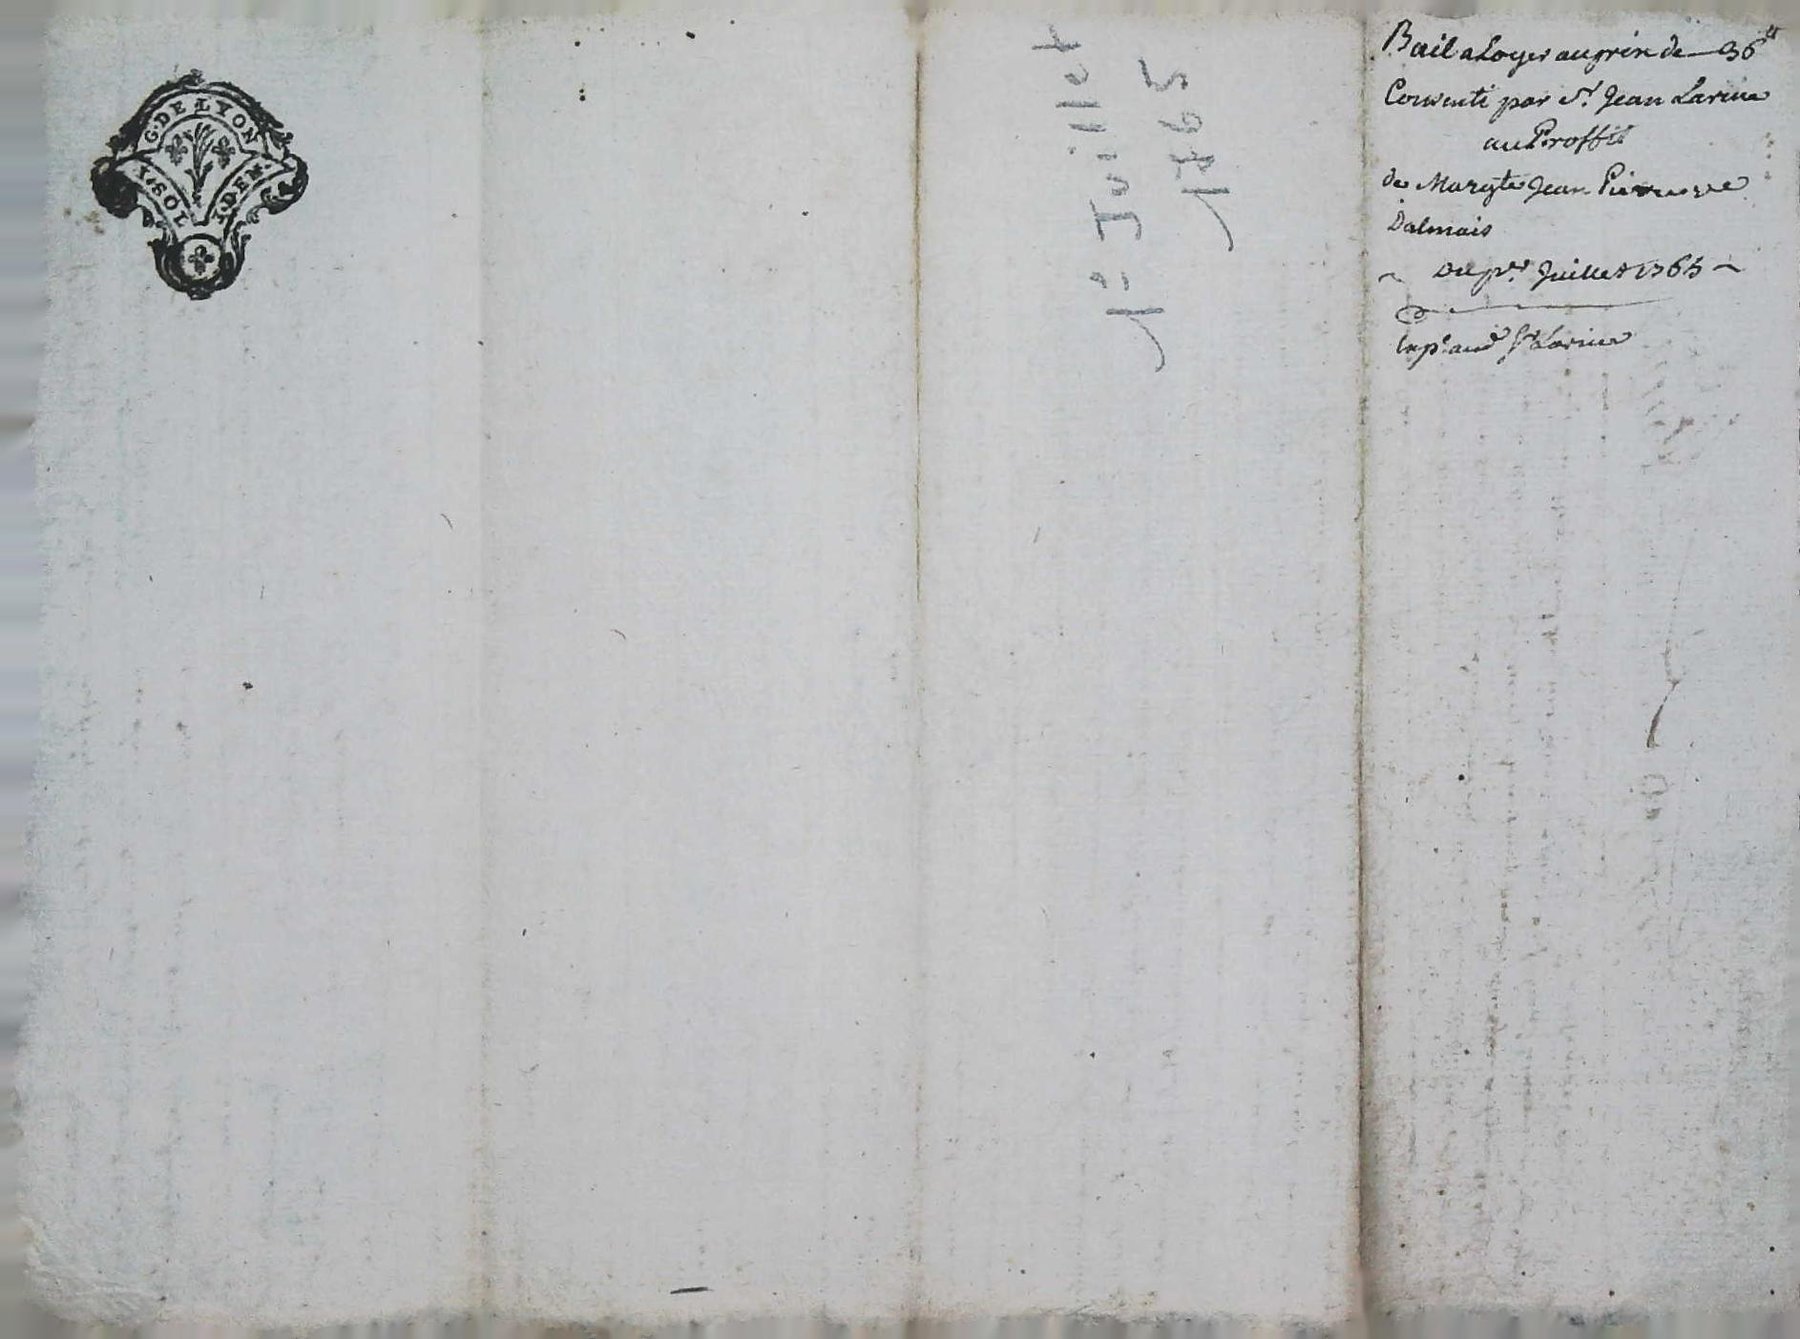 G. DE LYON
1.7SOL I.DEM.
1° Juillet
1765
Bail a Loyer au prix de — 36ᵗᵗ
Consenti par Sʳ. Jean Larive
au Proffit
de Margte Jean Pierre
Dalmais
Du pʳ. Juillet 1765
Exp. aud Sʳ Larive